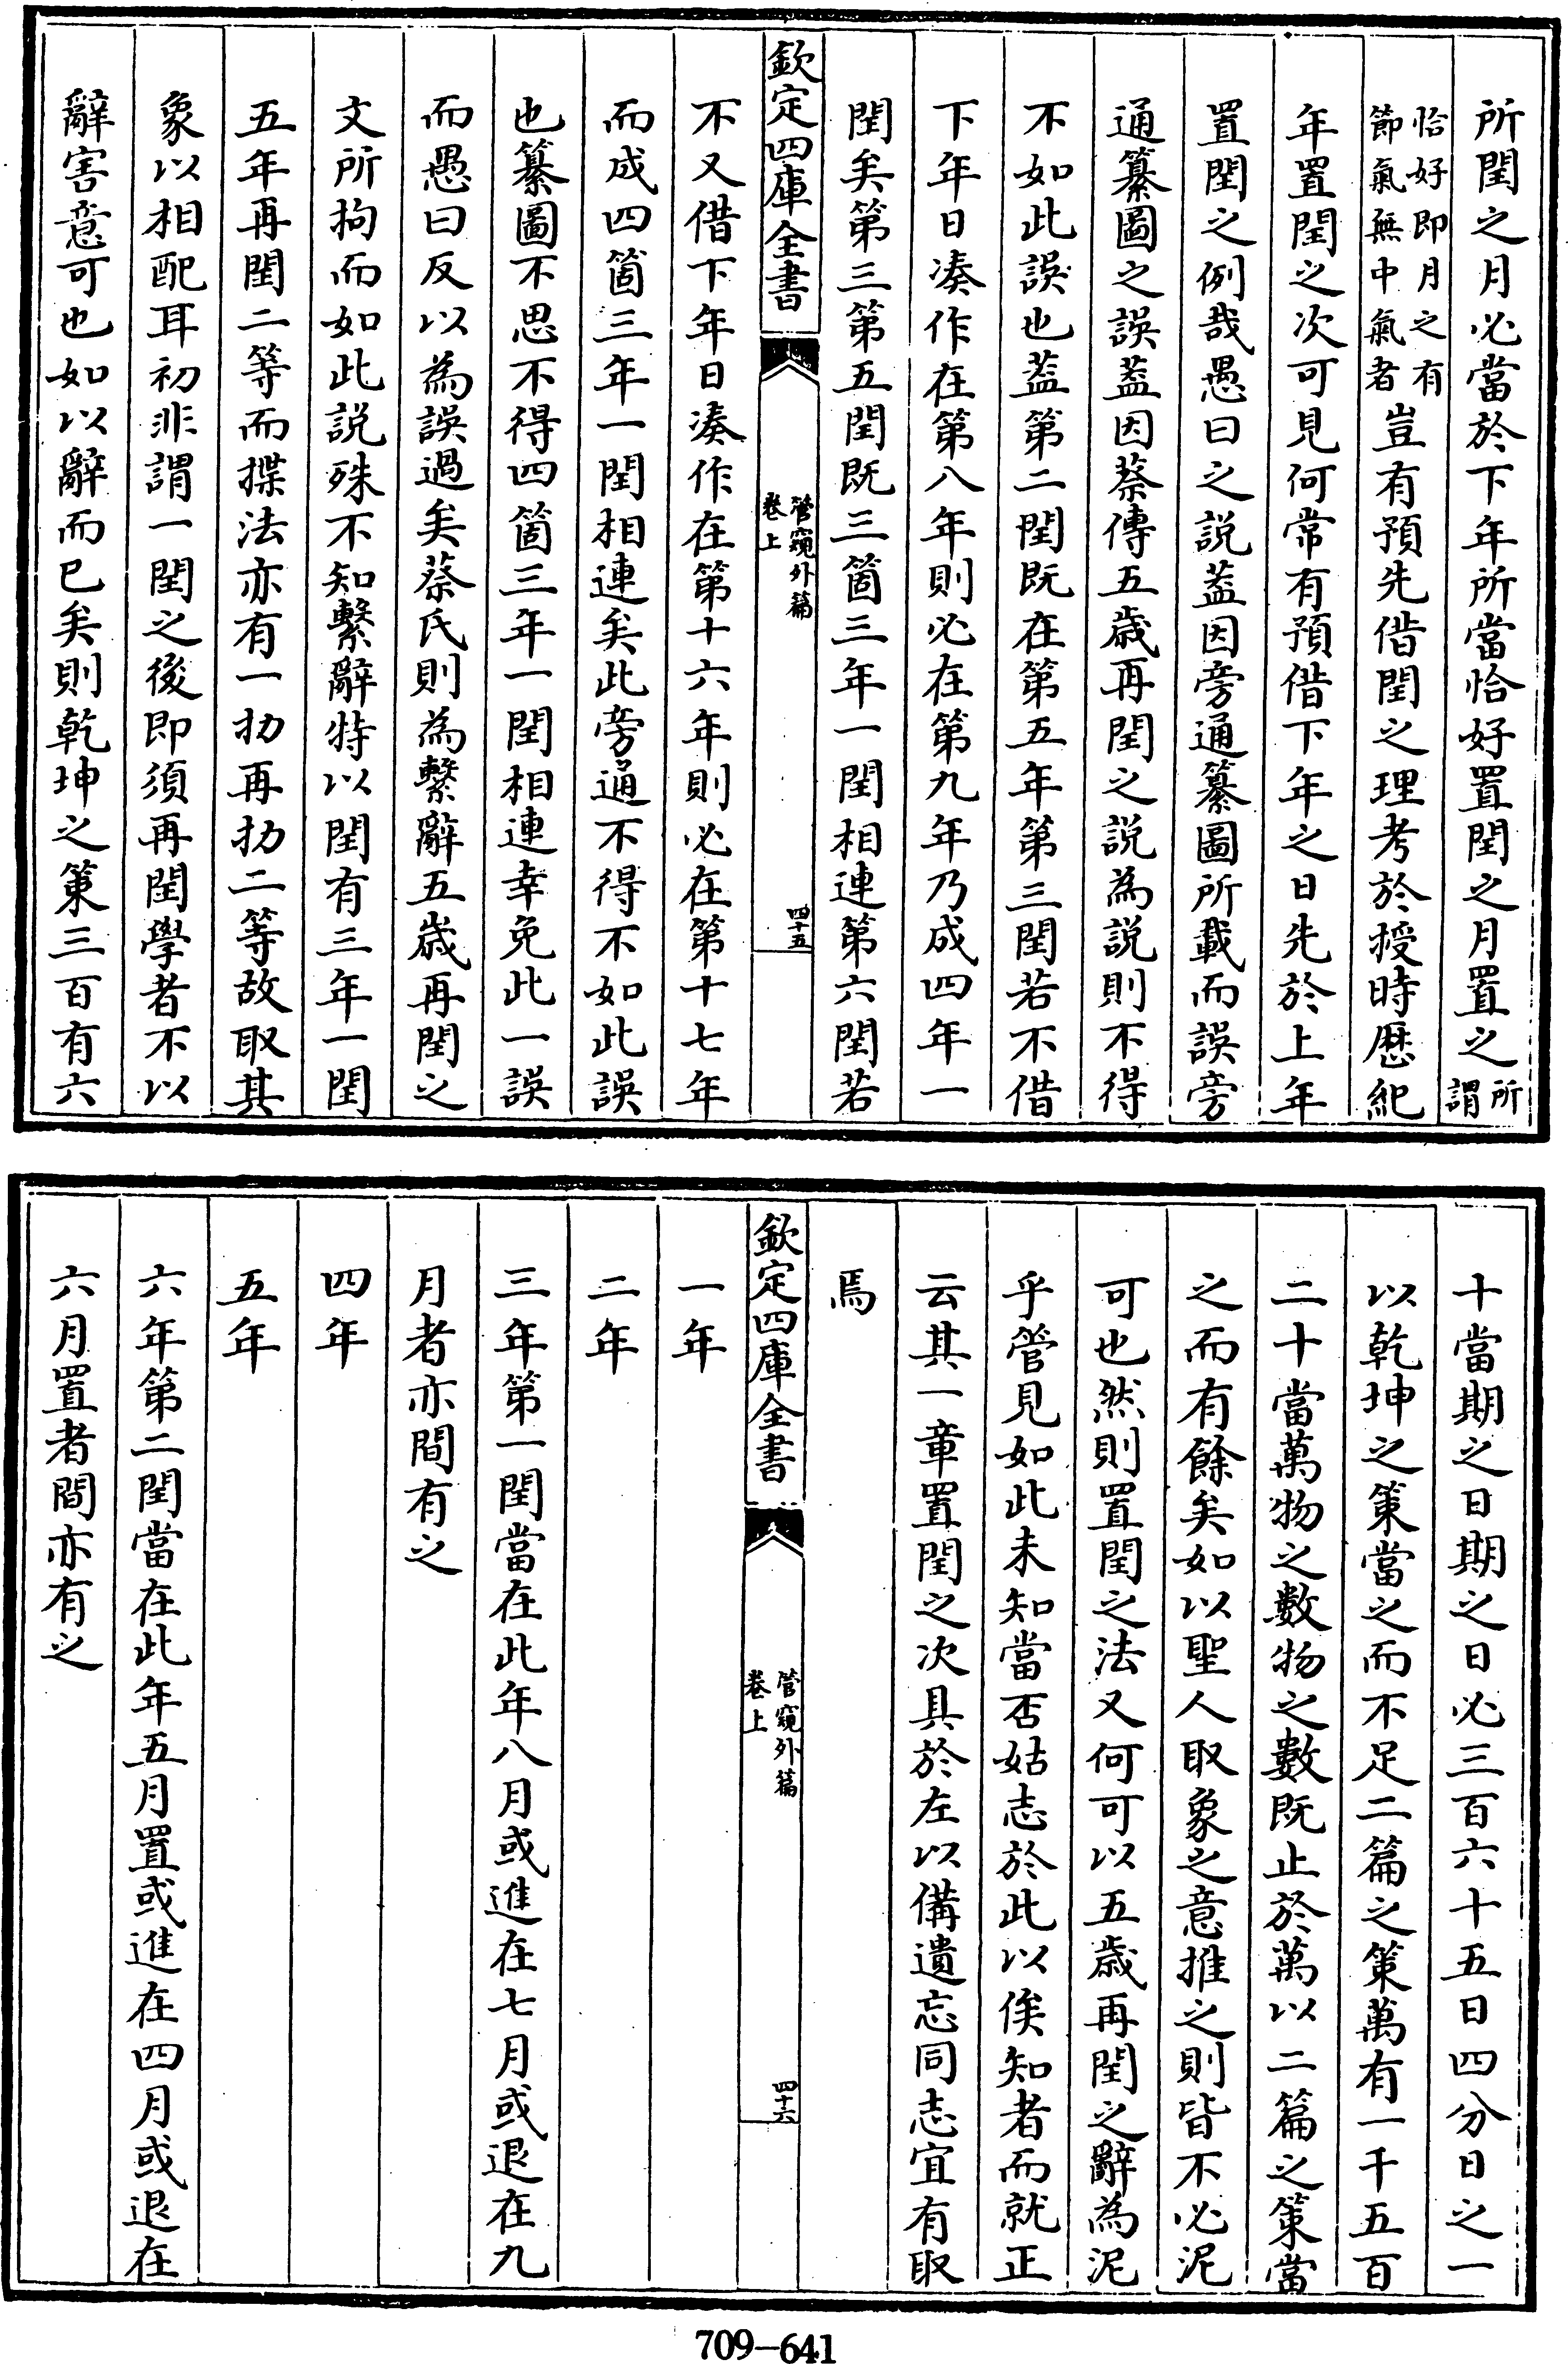 所閏之月必當於下年所當恰好置閏之月置之所謂
恰好即月之有節氣無中氣者豈有預先借閏之理考於授時厯紀
年置閏之次可見何常有預借下年之日先於上年
置閏之例哉愚曰之説葢因旁通纂圖所載而誤旁
通纂圖之誤葢因蔡傳五歲再閏之説為説則不得
不如此誤也葢第二閏既在第五年第三閏若不借
下年日凑作在第八年則必在第九年乃成四年一
閏矣第三第五閏既三箇三年一閏相連第六閏若
欽定四庫全書
管窺外篇
卷上
四十五
不又借下年日凑作在第十六年則必在第十七年
而成四箇三年一閏相連矣此旁通不得不如此誤
也纂圖不思不得四箇三年一閏相連幸免此一誤
而愚曰反以為誤過矣蔡氏則為繫辭五歲再閏之
文所拘而如此説殊不知繫辭特以閏有三年一閏
五年再閏二等而揲法亦有一扐再扐二等故取其
象以相配耳初非謂一閏之後即須再閏學者不以
辭害意可也如以辭而已矣則乾坤之策三百有六
十當期之日期之日必三百六十五日四分日之一
以乾坤之策當之而不足二篇之策萬有一千五百
二十當萬物之數物之數既止於萬以二篇之策當
之而有餘矣如以聖人取象之意推之則皆不必泥
可也然則置閏之法又何可以五歲再閏之辭為泥
乎管見如此未知當否姑志於此以俟知者而就正
云其一章置閏之次具於左以備遺忘同志宜有取
焉
欽定四庫全書
管窺外篇
卷上
四十六
一年
二年
三年第一閏當在此年八月或進在七月或退在九
月者亦間有之
四年
五年
六年第二閏當在此年五月置或進在四月或退在
六月置者間亦有之
709-641